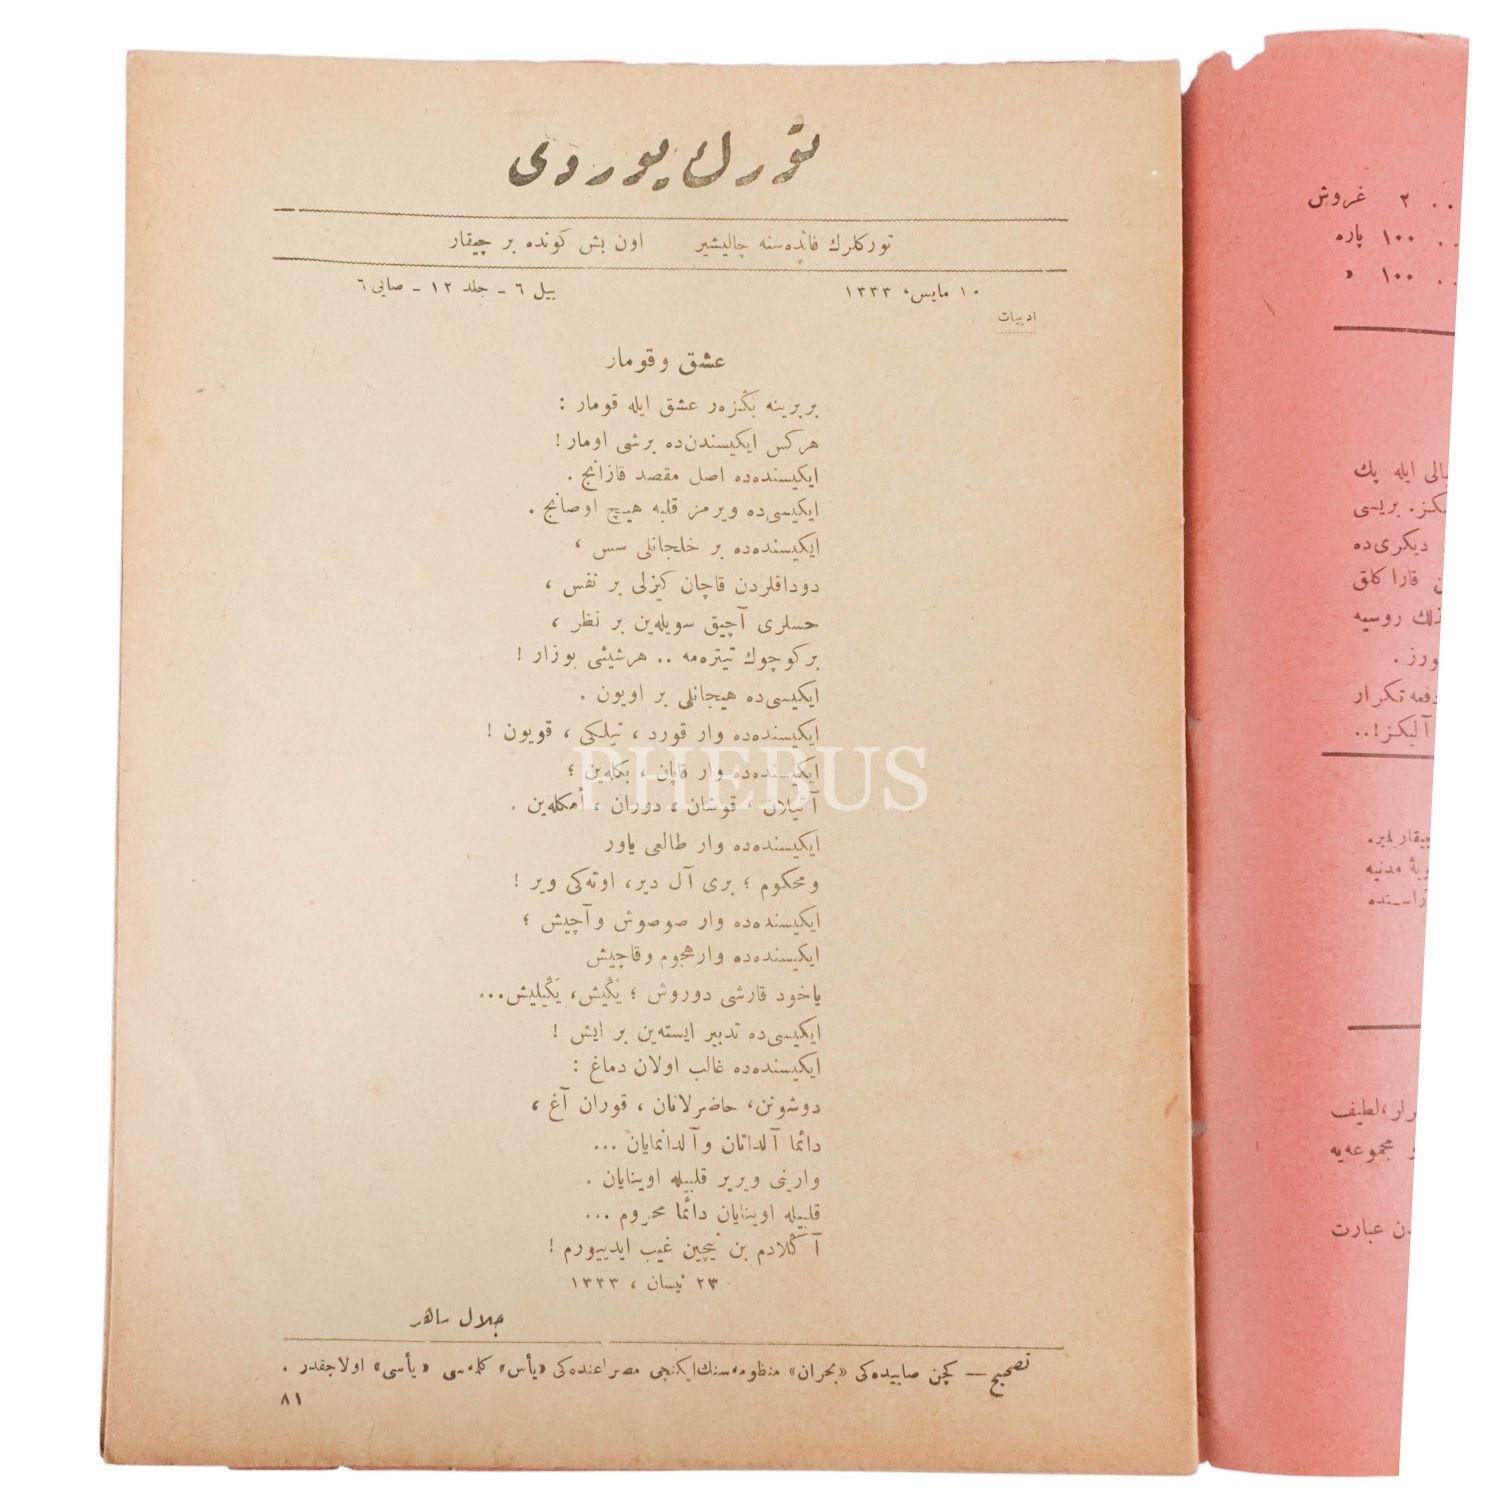 تورك يوردى
توركلرك فائده‌سنه چاليشير   اون بش كونده بر چيقار
١٠ مايس، ١٣٣٣   ييل ٦ ـ جلد ١٢ ـ صايى ٦
ادبيات
عشق وقومار
بربرينه بڭزه‌ر عشق ايله قومار :
هركس ايكيسندن‌ده برشى اومار!
ايكيسنده‌ده اصل مقصد قازانج .
ايكيسى‌ده ويرمز قلبه هيچ اوصانج .
ايكيسنده‌ده بر خلجانلى سس ،
دوداقلردن قاچان كيزلى بر نفس ،
حسلرى آچيق سويله‌ين بر نظر ،
بر كوچوك تيتره‌مه .. هرشيئى بوزار !
ايكيسى‌ده هيجانلى بر اويون .
ايكيسنده‌ده وار قورد ، تيلكى ، قويون !
ايكيسنده‌ده وار قاپان ، بكله‌ين ؛
آتيلان ، قوشان ، دوران ، أمكله‌ين .
ايكيسنده‌ده وار طالعى ياور
ومحكوم ؛ برى آل دير، اوته‌كى وير !
ايكيسنده‌ده وار صوصوش وآچيش ؛
ايكيسنده‌ده وار هجوم وقاچيش
ياخود قارشى دوروش ؛ يڭيش، يڭيليش...
ايكيسى‌ده تدبير ايسته‌ين بر ايش !
ايكيسنده‌ده غالب اولان دماغ :
دوشونن، حاضرلانان ، قوران آغ ،
دائما آلداتان وآلدانمايان ...
وارينى ويرير قلبيله اوينايان .
قلبيله اوينايان دائما محروم ...
آڭلادم بن نيچين غيب ايدييورم !
٢٣ نيسان ، ١٣٣٣
جلال ساهر
تصحيح — كچن صاييده‌كى «بحران» منظومه‌سنك ايكنجى مصراعنده‌كى «يأس» كلمه‌سى «يأسى» اولاجقدر .
٨١
.. ٢ غروش
.. ١٠٠ پاره
.. ١٠٠ »
ايله پك
بريسى
ديكرى‌ده
قارا كلق
روسيه
تكرار
آليكز!..
مدنيه
لطيف
مجموعه‌يه
عبارت